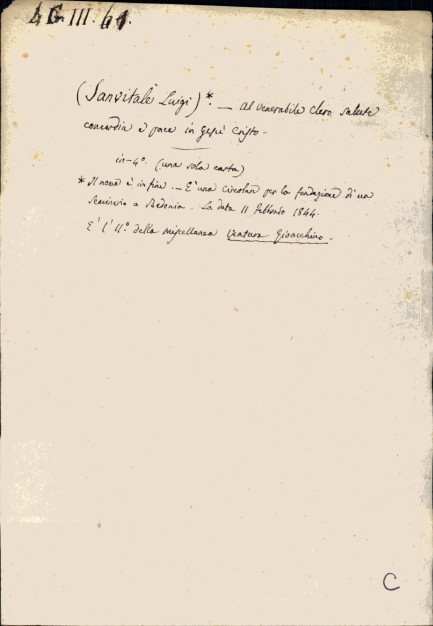 4G. III. 61.
(Sanvitale Luigi)* - Al Venerabile Clero, salute
concordia e pace in Gesù Cristo -
in-4°. (una sola carta)
* Il nome è in fine. - E' una circolare per la fondazione di un
Seminario a Bedonia. La data 11 febbraio 1844.
E' l'11° della miscellanea Ventura Gioacchino -
C